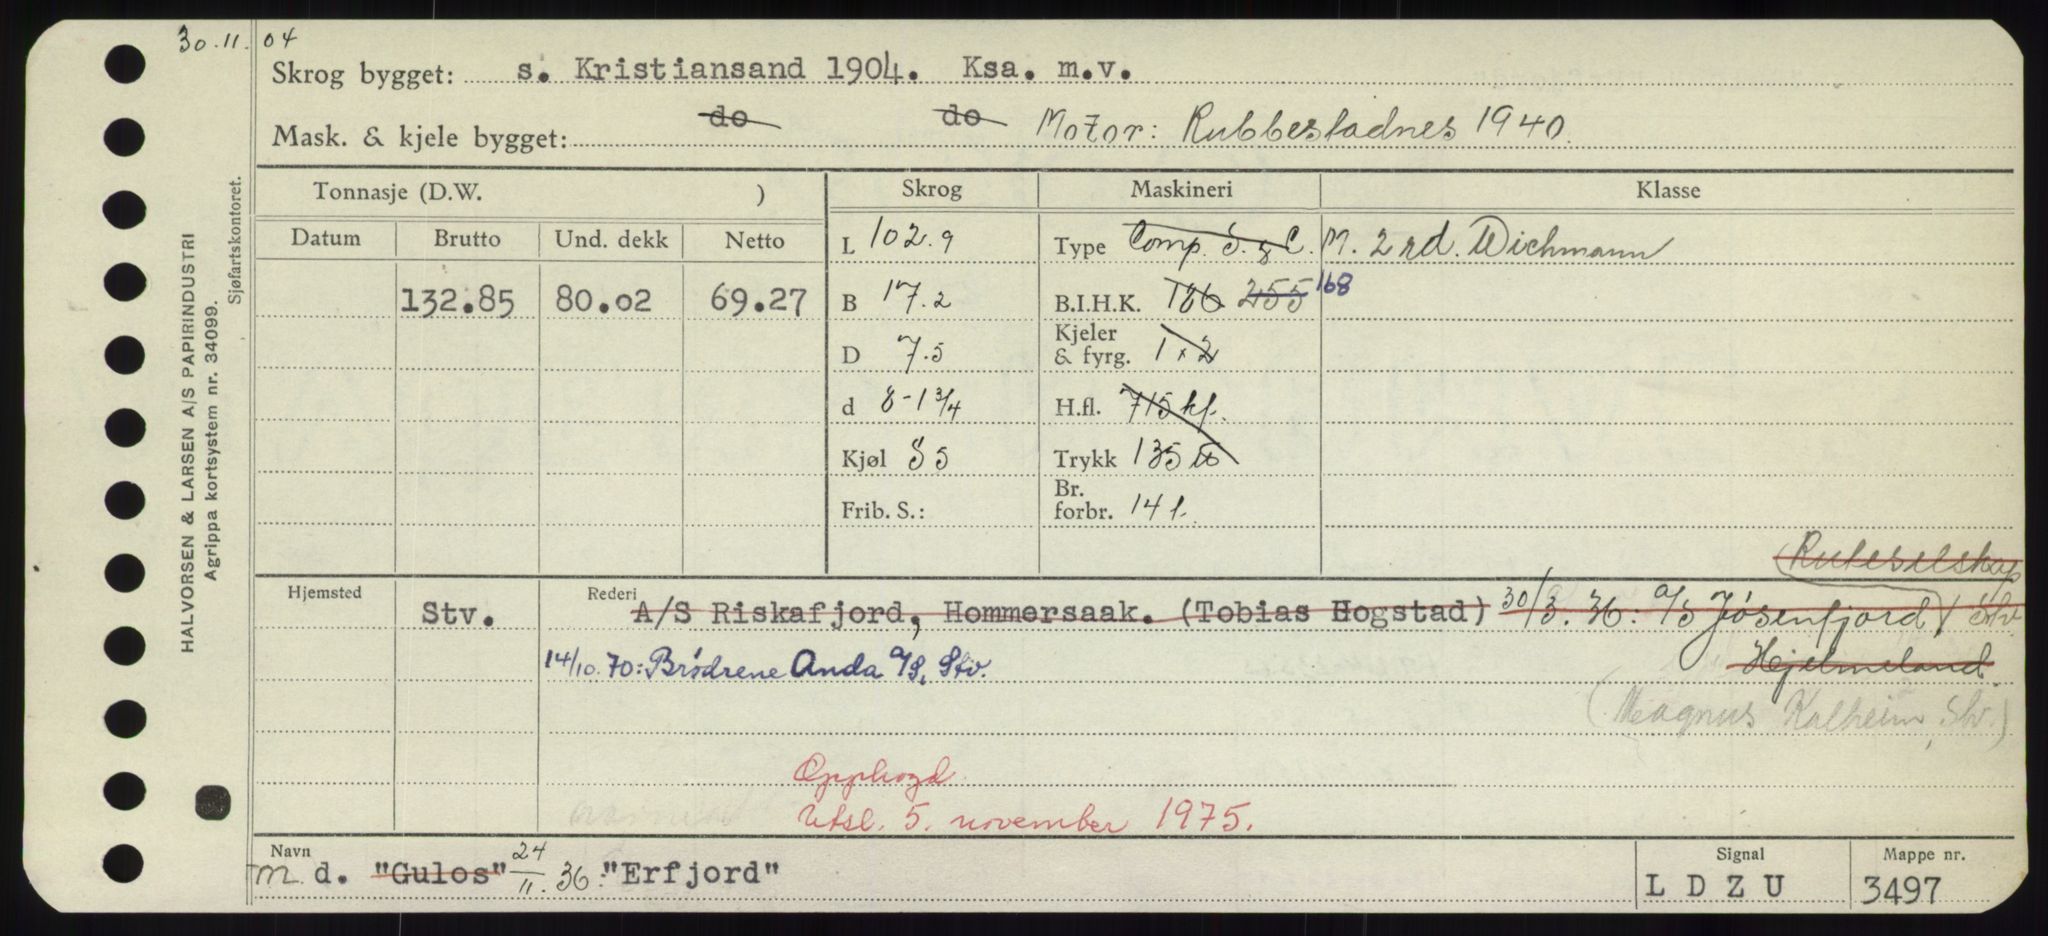 30.11.04
Skrog bygget: s. Kristiansand 1904. Ksa. m.v.
Mask. & kjele bygget: do do Motor: Rubbestadnes 1940.
HALVORSEN & LARSEN A/S PAPIRINDUSTRI
Agrippa kortsystem nr. 34099.
Sjøfartskontoret.
Tonnasje (D.W. ) Skrog Maskineri Klasse
Datum Brutto Und. dekk Netto L 102.9 Type Comp. S. & C. M. 2 rd. Wichmann
132.85 80.02 69.27 B 17.2 B.I.H.K. 186 255 168
D 7.5 Kjeler & fyrg. 1 x 2
d 8-1 3/4 H.fl. 715 kf.
Kjøl S 5 Trykk 135 lb
Frib. S.: Br. forbr. 14 t.
Ruteselskap
Hjemsted Stv. Rederi A/S Riskafjord, Hommersaak. (Tobias Hogstad) 30/3. 36: A/S Jøsenfjord, Stv
14/10.70: Brødrene Anda A/S, Stv. Hjelmeland.
(Magnus Kalheim, Stv.)
Opphogd
Utsl. 5. november 1975.
Navn Signal Mappe nr.
m d. "Gulos" 24/11. 36: "Erfjord" LDZU 3497